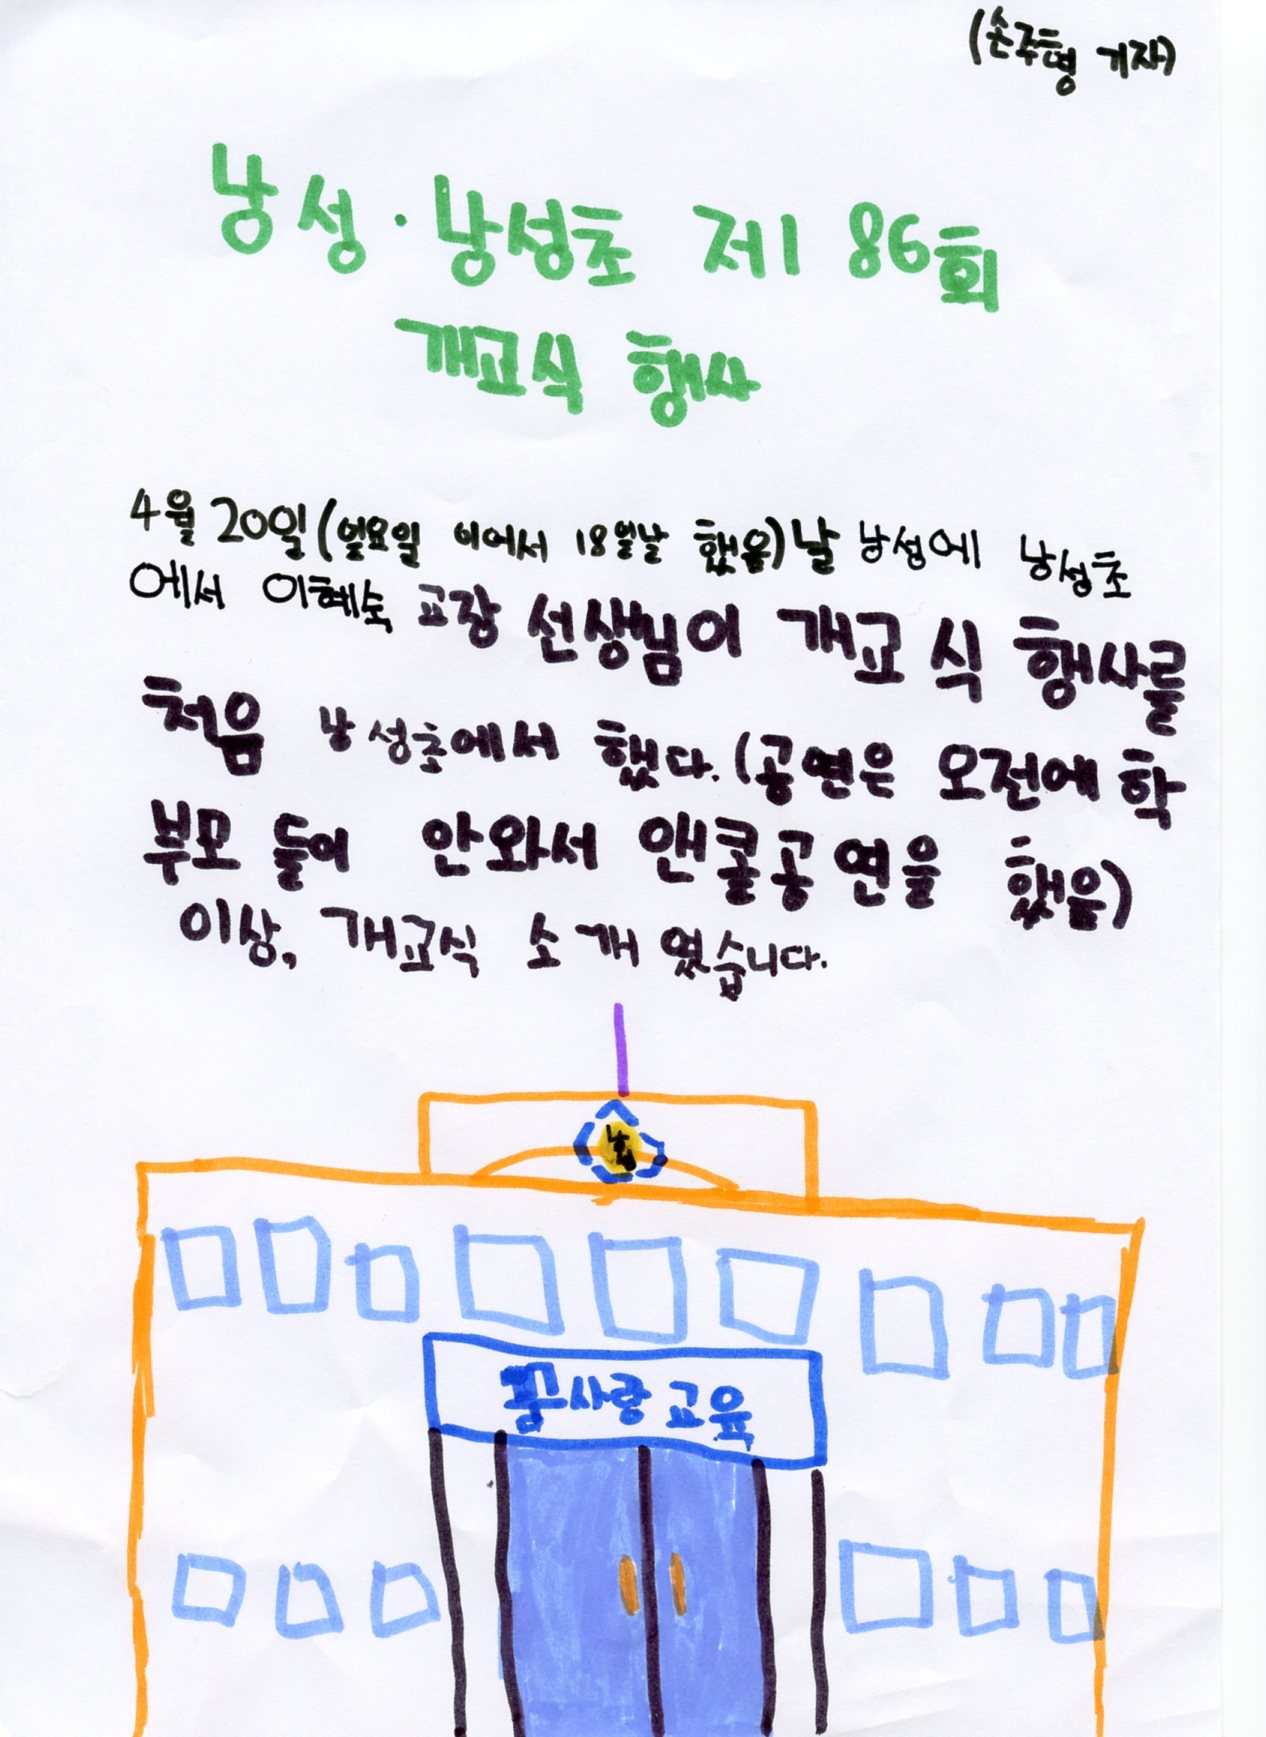 (손주형 기자)
낭성·낭성초 제 86회
개교식 행사
4월 20일(일요일 이어서 18일날 했음)날 낭성에 낭성초
에서 이혜숙 교장 선생님이 개교식 행사를
처음 낭성초에서 했다.(공연은 오전에 학
부모 들이 안와서 앤콜공연을 했음)
이상, 개교식 소개 였습니다.
꿈사랑 교육